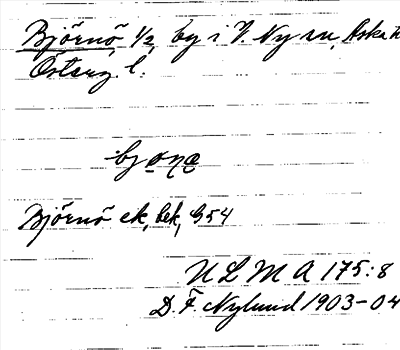 Björnö, 1/2, by i V. Ny sn, Aska h
Österg. l.
Björnö ek, bek, G54
ULMA 175:8
D. F. Nylund 1903-04